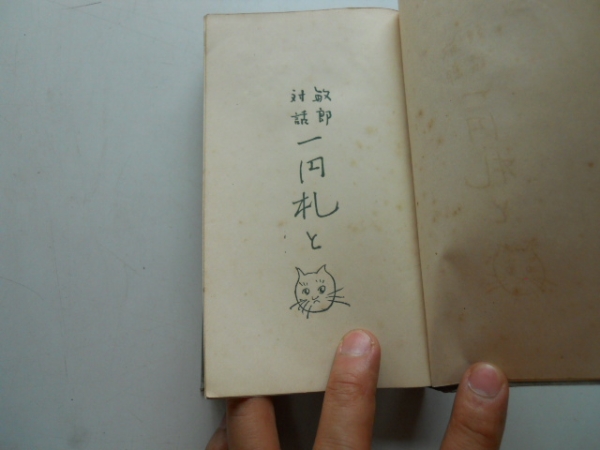 敏郎
対話
一円札と